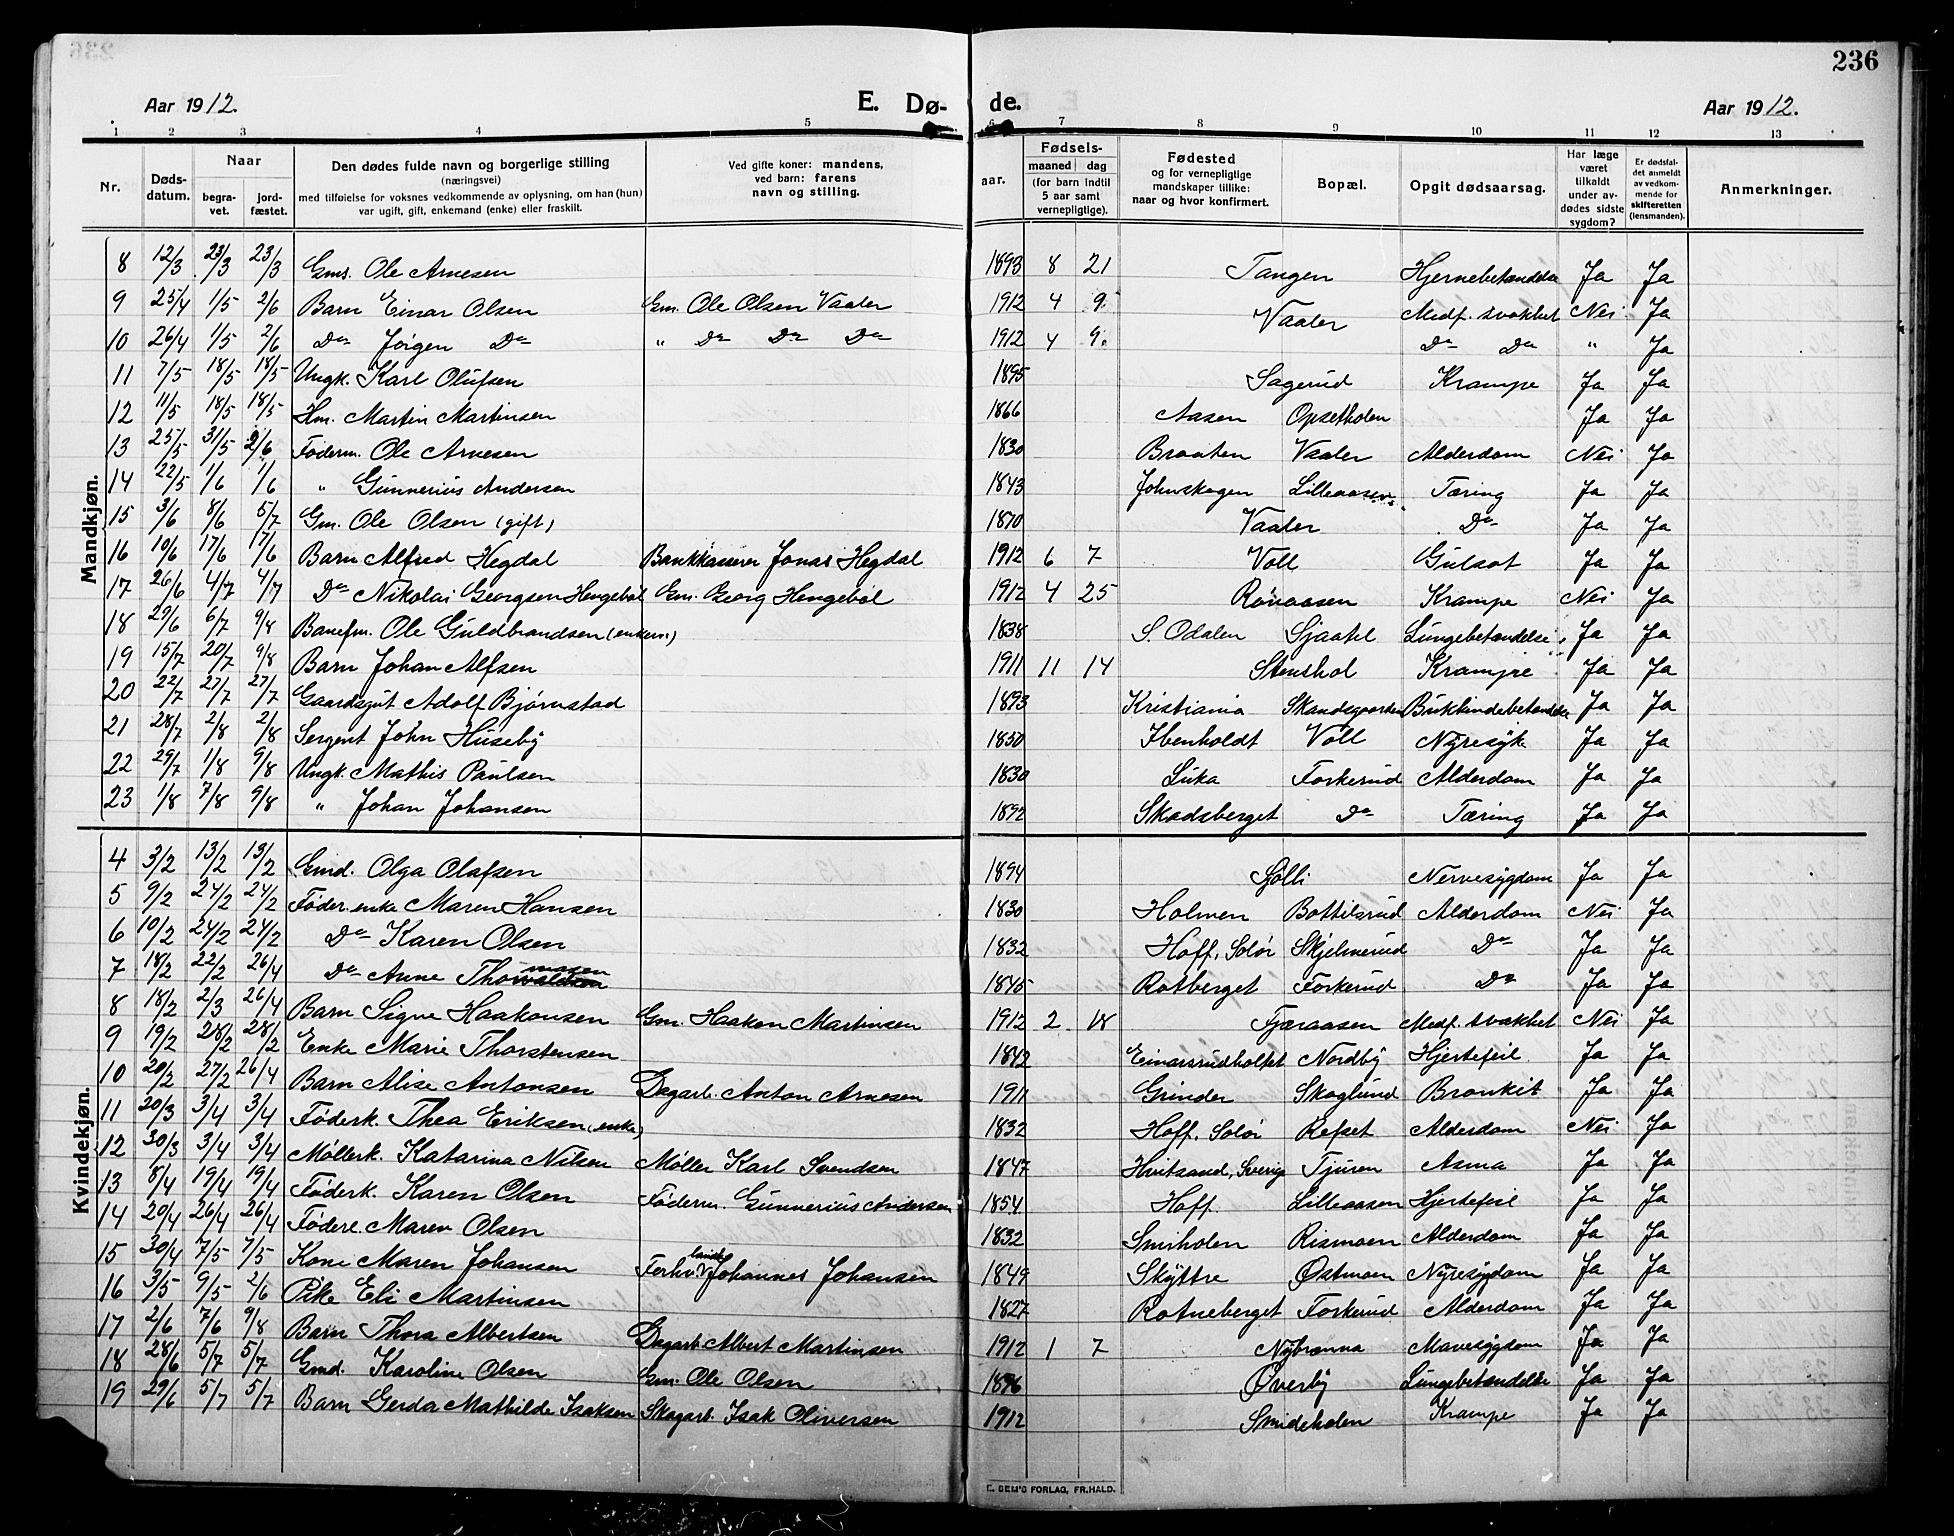 236
Aar 1912. E. Dø- de. Aar 1912.
1 2 3 4 5 6 7 8 9 10 11 12 13
Nr. Døds-datum. Naar begra-vet. jord-fæstet. Den dødes fulde navn og borgerlige stilling (næringsvei) med tilføielse for voksnes vedkommende av oplysning, om han (hun) var ugift, gift, enkemand (enke) eller fraskilt. Ved gifte koner: mandens, ved barn: farens navn og stilling. aar. Fødsels- maaned dag (for barn indtil 5 aar samt vernepligtige). Fødested og for vernepligtige mandskaper tillike: naar og hvor konfirmert. Bopæl. Opgit dødsaarsag. Har læge været tilkaldt under av-dødes sidste sygdom? Er dødsfal-det anmeldt av vedkom-mende for skifteretten (lensmanden). Anmerkninger.
Mandkjøn.
8 12/3 23/3 23/3 Gms. Ole Arnesen 1893 8 21 Tangen Hjernebetændelse Ja Ja
9 25/4 1/5 2/6 Barn Einar Olsen Gm. Ole Olsen Vaaler 1912 4 9. Vaaler Medf. svakhet Nei Ja
10 26/4 1/5 2/6 Do Jörgen Do " Do Do Do 1912 4 9. Do Do " Ja
11 7/5 18/5 18/5 Ungk. Karl Olufsen 1895 Sagerud Krampe Ja Ja
12 11/5 18/5 18/5 Hm. Martin Martinsen 1866 Aasen Opsetholen Ja Ja
13 25/5 31/5 2/6 Föderm. Ole Arnesen 1830 Braaten Vaaler Alderdom Nei Ja
14 22/5 1/6 1/6 " Gunnerius Andersen 1843 Johnskogen Lilleaasen Tæring Ja Ja
15 3/6 8/6 5/7 Gm. Ole Olsen (gift) 1870 Vaaler Do Ja Ja
16 10/6 17/6 17/6 Barn Alfred Hegdal Bankkasserer Jonas Hegdal 1912 6 7 Voll Gulsot Ja Ja
17 26/6 4/7 4/7 Do Nikolai Georgsen Hengeböl Gm. Georg Hengeböl 1912 4 25 Rönaasen Krampe Nei Ja
18 29/6 6/7 9/8 Banefm. Ole Guldbrandsen (enkem) 1838 S. Odalen Sjaatel Lungebetændelse Ja Ja
19 15/7 20/7 9/8 Barn Johan Alfsen 1911 11 14 Stenshol Krampe Ja Ja
20 22/7 27/7 27/7 Gaardsgut Adolf Björnstad 1893 Kristiania Skandsgaarden Bukhindebetændelse Ja Ja
21 28/7 2/8 2/8 Sergent John Huseby 1850 Ibenholdt Voll Nyresyk Ja Ja
22 29/7 1/8 9/8 Ungk. Mathis Paulsen 1830 Luka Forkerud Alderdom Ja Ja
23 1/8 7/8 9/8 " Johan Johansen 1892 Skadsberget Do Tæring Ja Ja
Kvindekjøn.
4 3/2 13/2 13/2 Gmd. Olga Olafsen 1894 Sölli Nervesygdom Ja Ja
5 9/2 24/2 24/2 Föder.enke Maren Hansen 1830 Holmen Bottilsrud Alderdom Nei Ja
6 10/2 24/2 24/2 Do Karen Olsen 1832 Hoff, Solör Skjelmerud Do Ja Ja
7 18/2 22/2 26/4 Do Anne Thomasen 1845 Rotberget Forkerud Do Ja Ja
8 18/2 2/3 26/4 Barn Signe Haakonsen Gm. Haakon Martinsen 1912 2 18 Fjæraasen Medf. svakhet Nei Ja
9 19/2 28/2 28/2 Enke Marie Thorstensen 1842 Einarsrudholtet Nordby Hjertefeil Ja Ja
10 20/2 27/2 26/4 Barn Alise Antonsen Dagarb. Anton Arnesen 1911 Grinder Skoglund Bronkit Ja Ja
11 20/3 3/4 3/4 Föderk. Thea Eriksen (enke) 1832 Hoff, Solör Refset Alderdom Nei Ja
12 30/3 3/4 3/4 Möllerk. Katarina Nilsen Möller Karl Svendsen 1847 Hvitsand, Sverig Tjuren Asma Ja Ja
13 8/4 19/4 19/4 Föderk. Karen Olsen Föderm. Gunnerius Andersen 1854 Hoff. Lilleaasen Hjertefeil Ja Ja
14 20/4 26/4 26/4 Födere. Maren Olsen 1832 Smiholen Rismoen Alderdom Ja Ja
15 30/4 7/5 7/5 Kone Maren Johansen Forhv. Johannes Johansen 1849 Skyttre Östmoen Nyresygdom Ja Ja
16 3/5 9/5 2/6 Pike Eli Martinsen 1827 Rotneberget Forkerud Alderdom Ja Ja
17 2/6 7/6 9/8 Barn Thora Albertsen Dagarb. Albert Martinsen 1912 1 7 Nybrænna Mavesygdom Ja Ja
18 28/6 5/7 5/7 Gmd. Karoline Olsen Gm. Ole Olsen 1896 Överby Lungebetændelse Ja Ja
19 29/6 5/7 5/7 Barn Gerda Mathilde Isaksen Skogarb. Isak Oliversen 1912 Smideholen Krampe Ja Ja
E. SEM'S FORLAG, FR.HALD.